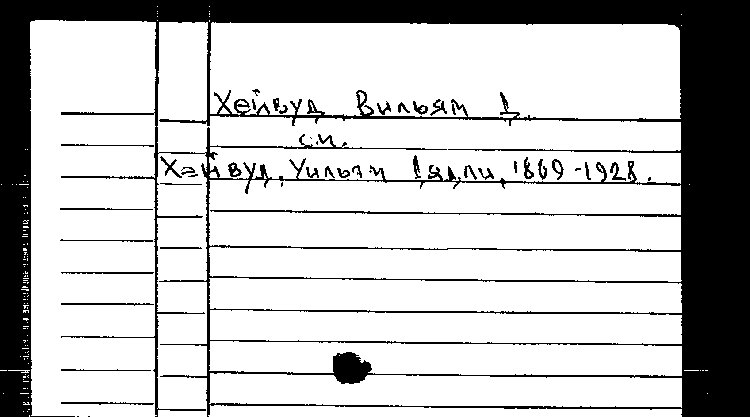 Хейвуд, Вильям Д.
см.
Хэйвуд, Уильям Дядли, 1869-1928.